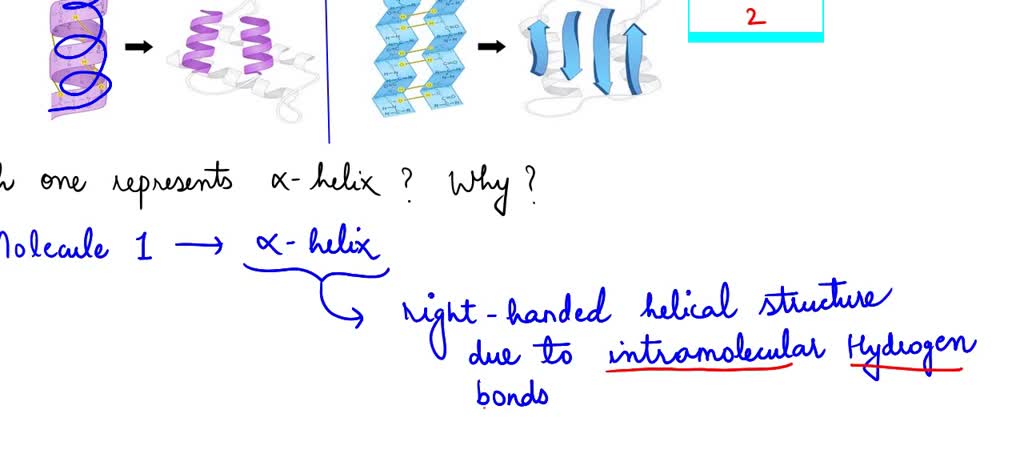 2
one represents α-helix ? Why ?
Molecule 1 → α-helix
right-handed helical structure
due to intramolecular Hydrogen
bonds